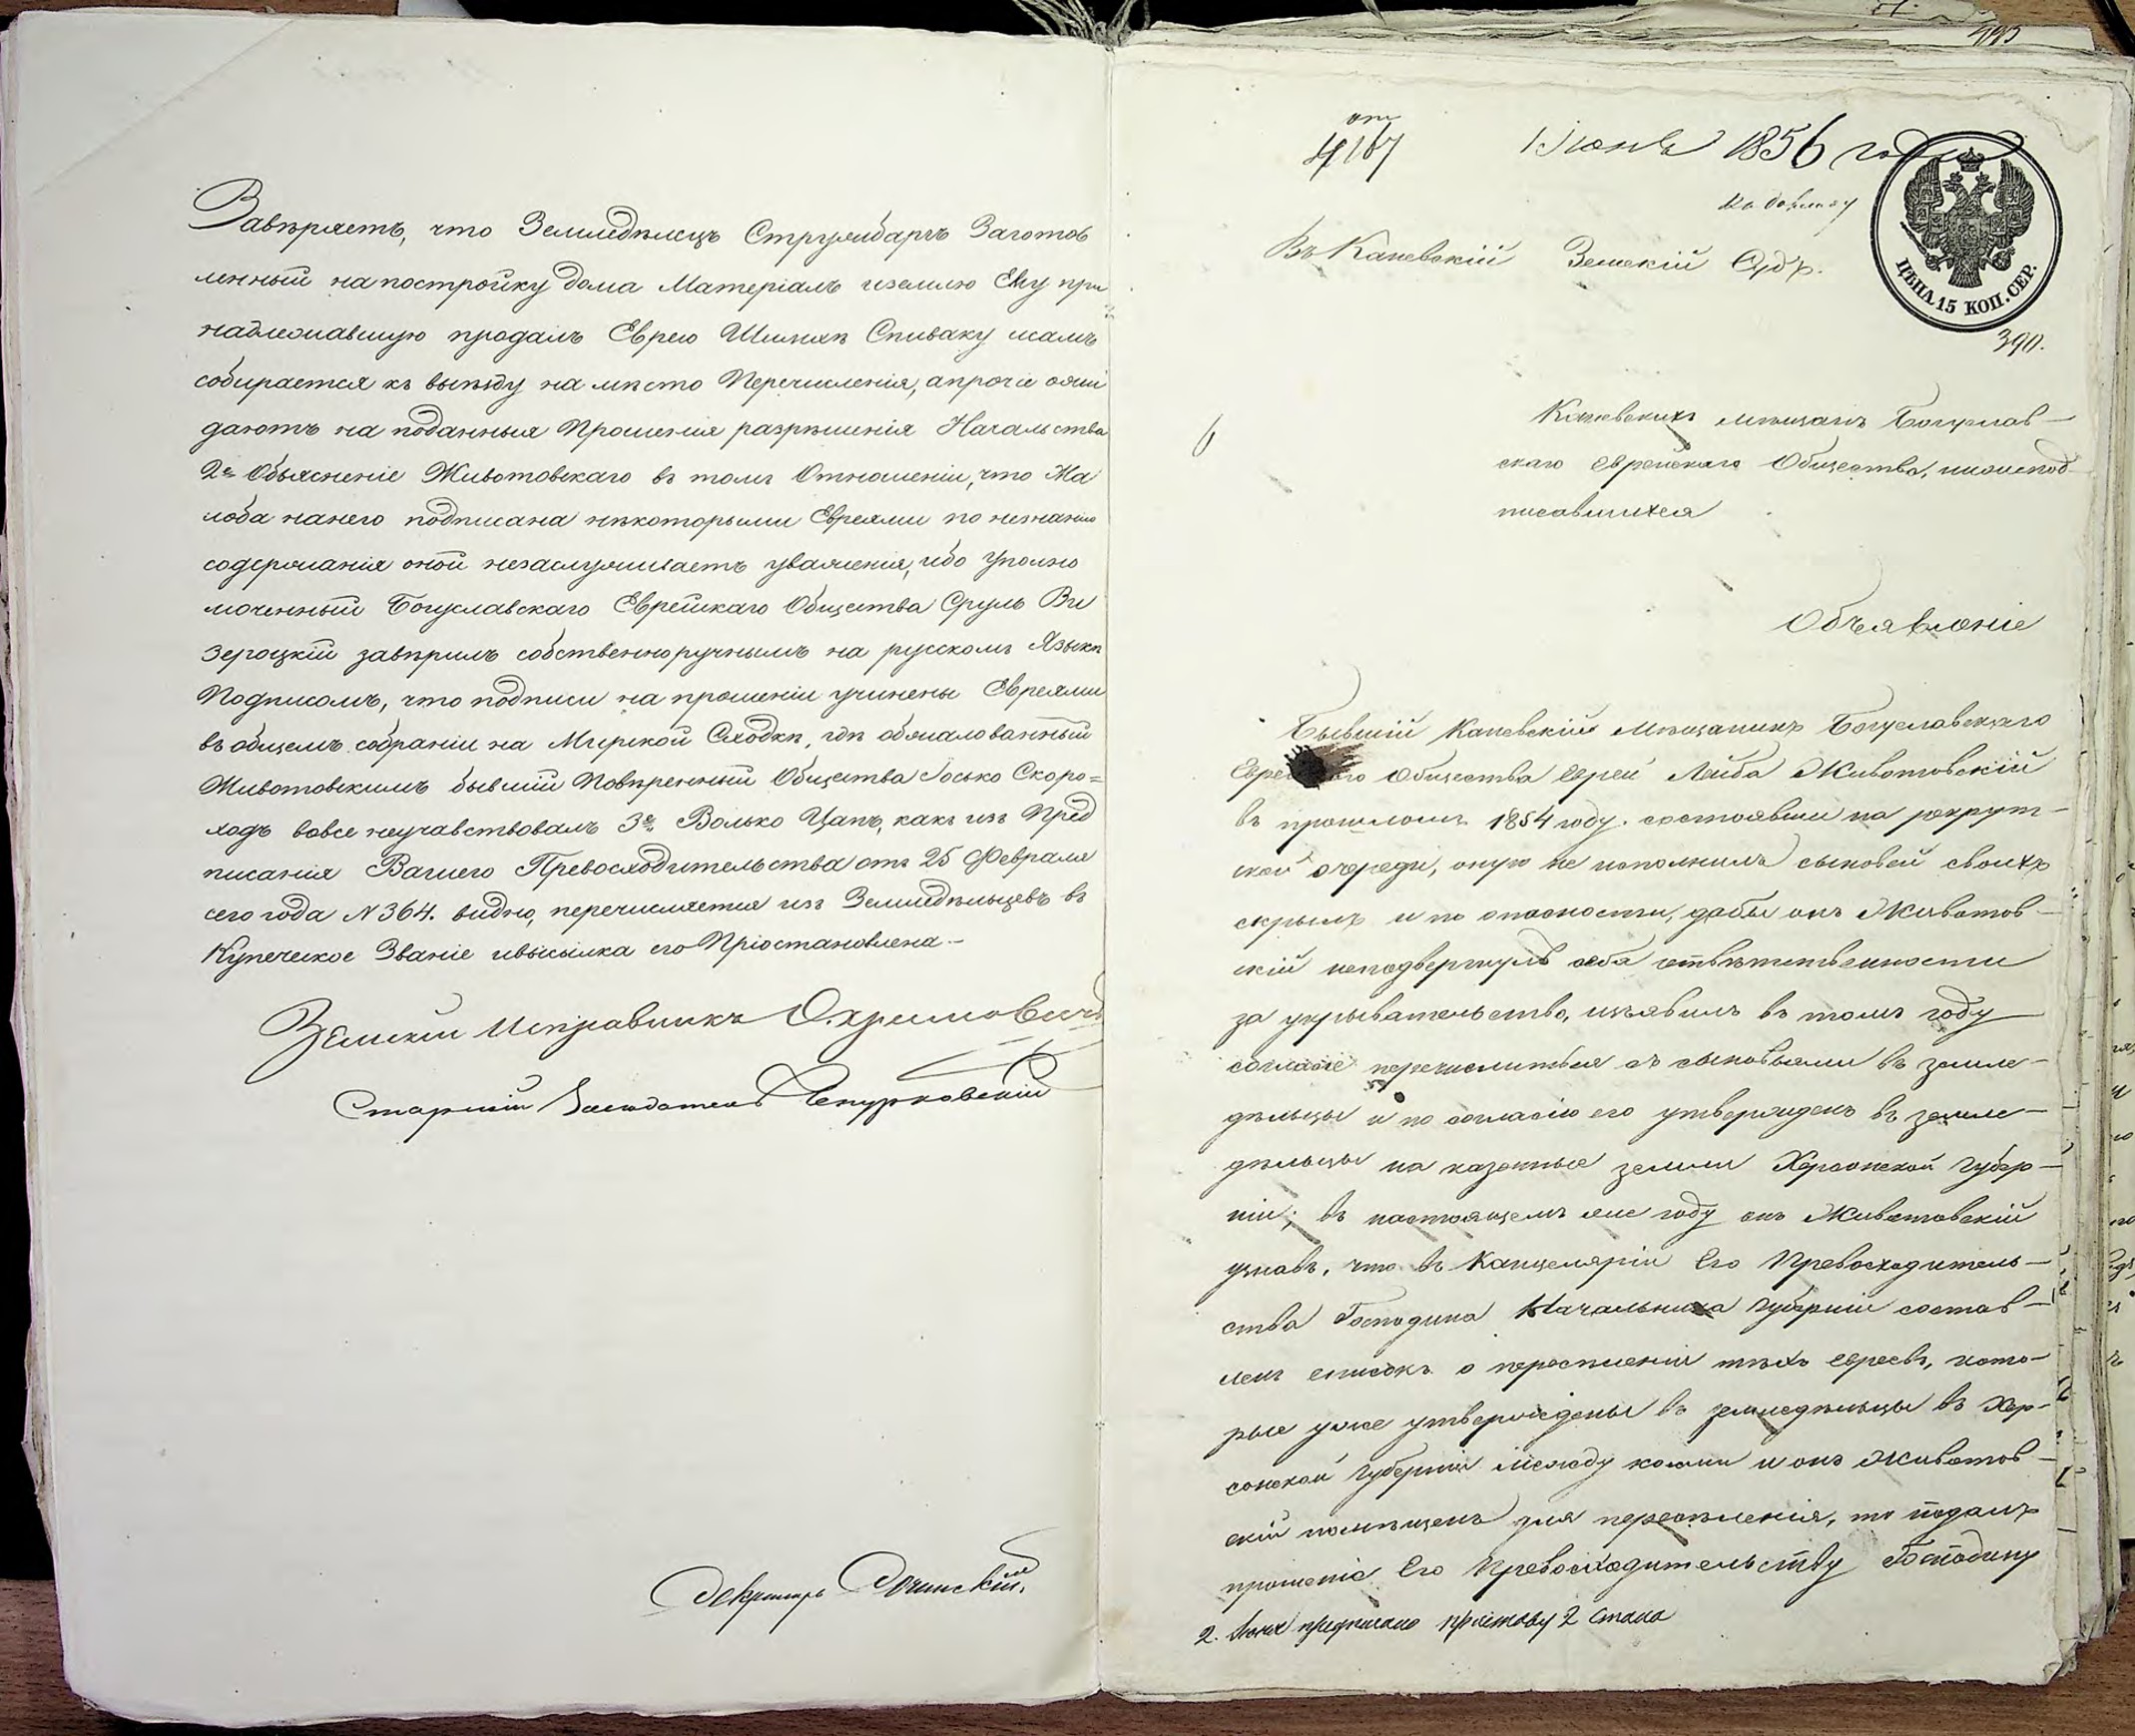 Завѣряетъ, что Земледѣлецъ Струлибаръ Заготов
ленный на постройку дома Матеріалъ иземлю Ему при
надлежавшую продалъ Еврею Шмилѣ Спиваку исамъ
собирается къ выѣзду на мѣсто Перечисленія, апрочіе ожи
даютъ на поданныя Прошенія разрѣшенія Начальства
2е Объясненіе Животовскаго въ томъ Отношеніи, что Жа
лоба нанего подписана нѣкоторыми Евреями по незнанію
содержанія оной незаслуживаетъ уваженія, ибо Уполно
моченный Богуславскаго Еврейскаго Общества Сруль Ви
зероцкій завѣрилъ собственноручнымъ на русскомъ Языкѣ
Подписомъ, что подписи на прошеніи учинены Евреями
въ общемъ собраніи на Мирской Сходкѣ, гдѣ обжалованный
Животовскимъ бывшій Повѣренный Общества Іосько Скоро=
ходъ вовсе неучавствовалъ 3е Волько Цапъ, какъ изъ Пред
писанія Вашего Превосходительства отъ 25 Февраля
сего года N 364. видно, перечисляется изъ Земледѣльцевъ въ
Купеческое Званіе ивысылка его Пріостановлена.—
Земскій Исправникъ Охримовичъ
Старшій Засѣдатель
Секретарь
4167
Іюнь 1856 года
ЦѢНА 15 КОП. СЕР.
Въ Каневскій Земскій Судъ.
390.
Каневскихъ мѣщанъ Богуслав—
скаго Еврейскаго Общества, нижепод—
писавшихся
Объявленіе
Бывшій Каневскій Мѣщанинъ Богуславскаго
Общества Еврей Лейба Животовскій
въ прошломъ 1854 году. состоявши на рекрут—
ской очереди, оную не исполнилъ сыновей своихъ
скрылъ и по опасности, дабы онъ Животов—
скій неподвергнулъ себя отвѣтственности
за укрывательство, изъявилъ въ томъ году
согласіе перечислиться съ сыновьями въ земле—
дѣльцы и по согласію его утвержденъ въ земле—
дѣльцы на казенные земли Херсонской Губер—
ніи; въ настоящемъ же году онъ Животовскій
узнавъ, что въ Канцеляріи Его Превосходитель—
ства Господина Начальника Губерніи состав—
ленъ списокъ о переселеніи тѣхъ евреевъ, кото—
рые уже утверждены въ земледѣльцы въ Хер—
сонской Губерніи между коими и онъ Животов—
скій помѣщенъ для переселенія, то подалъ
прошеніе Его Превосходительству Господину
2. Іюня предписано приставу 2 стана